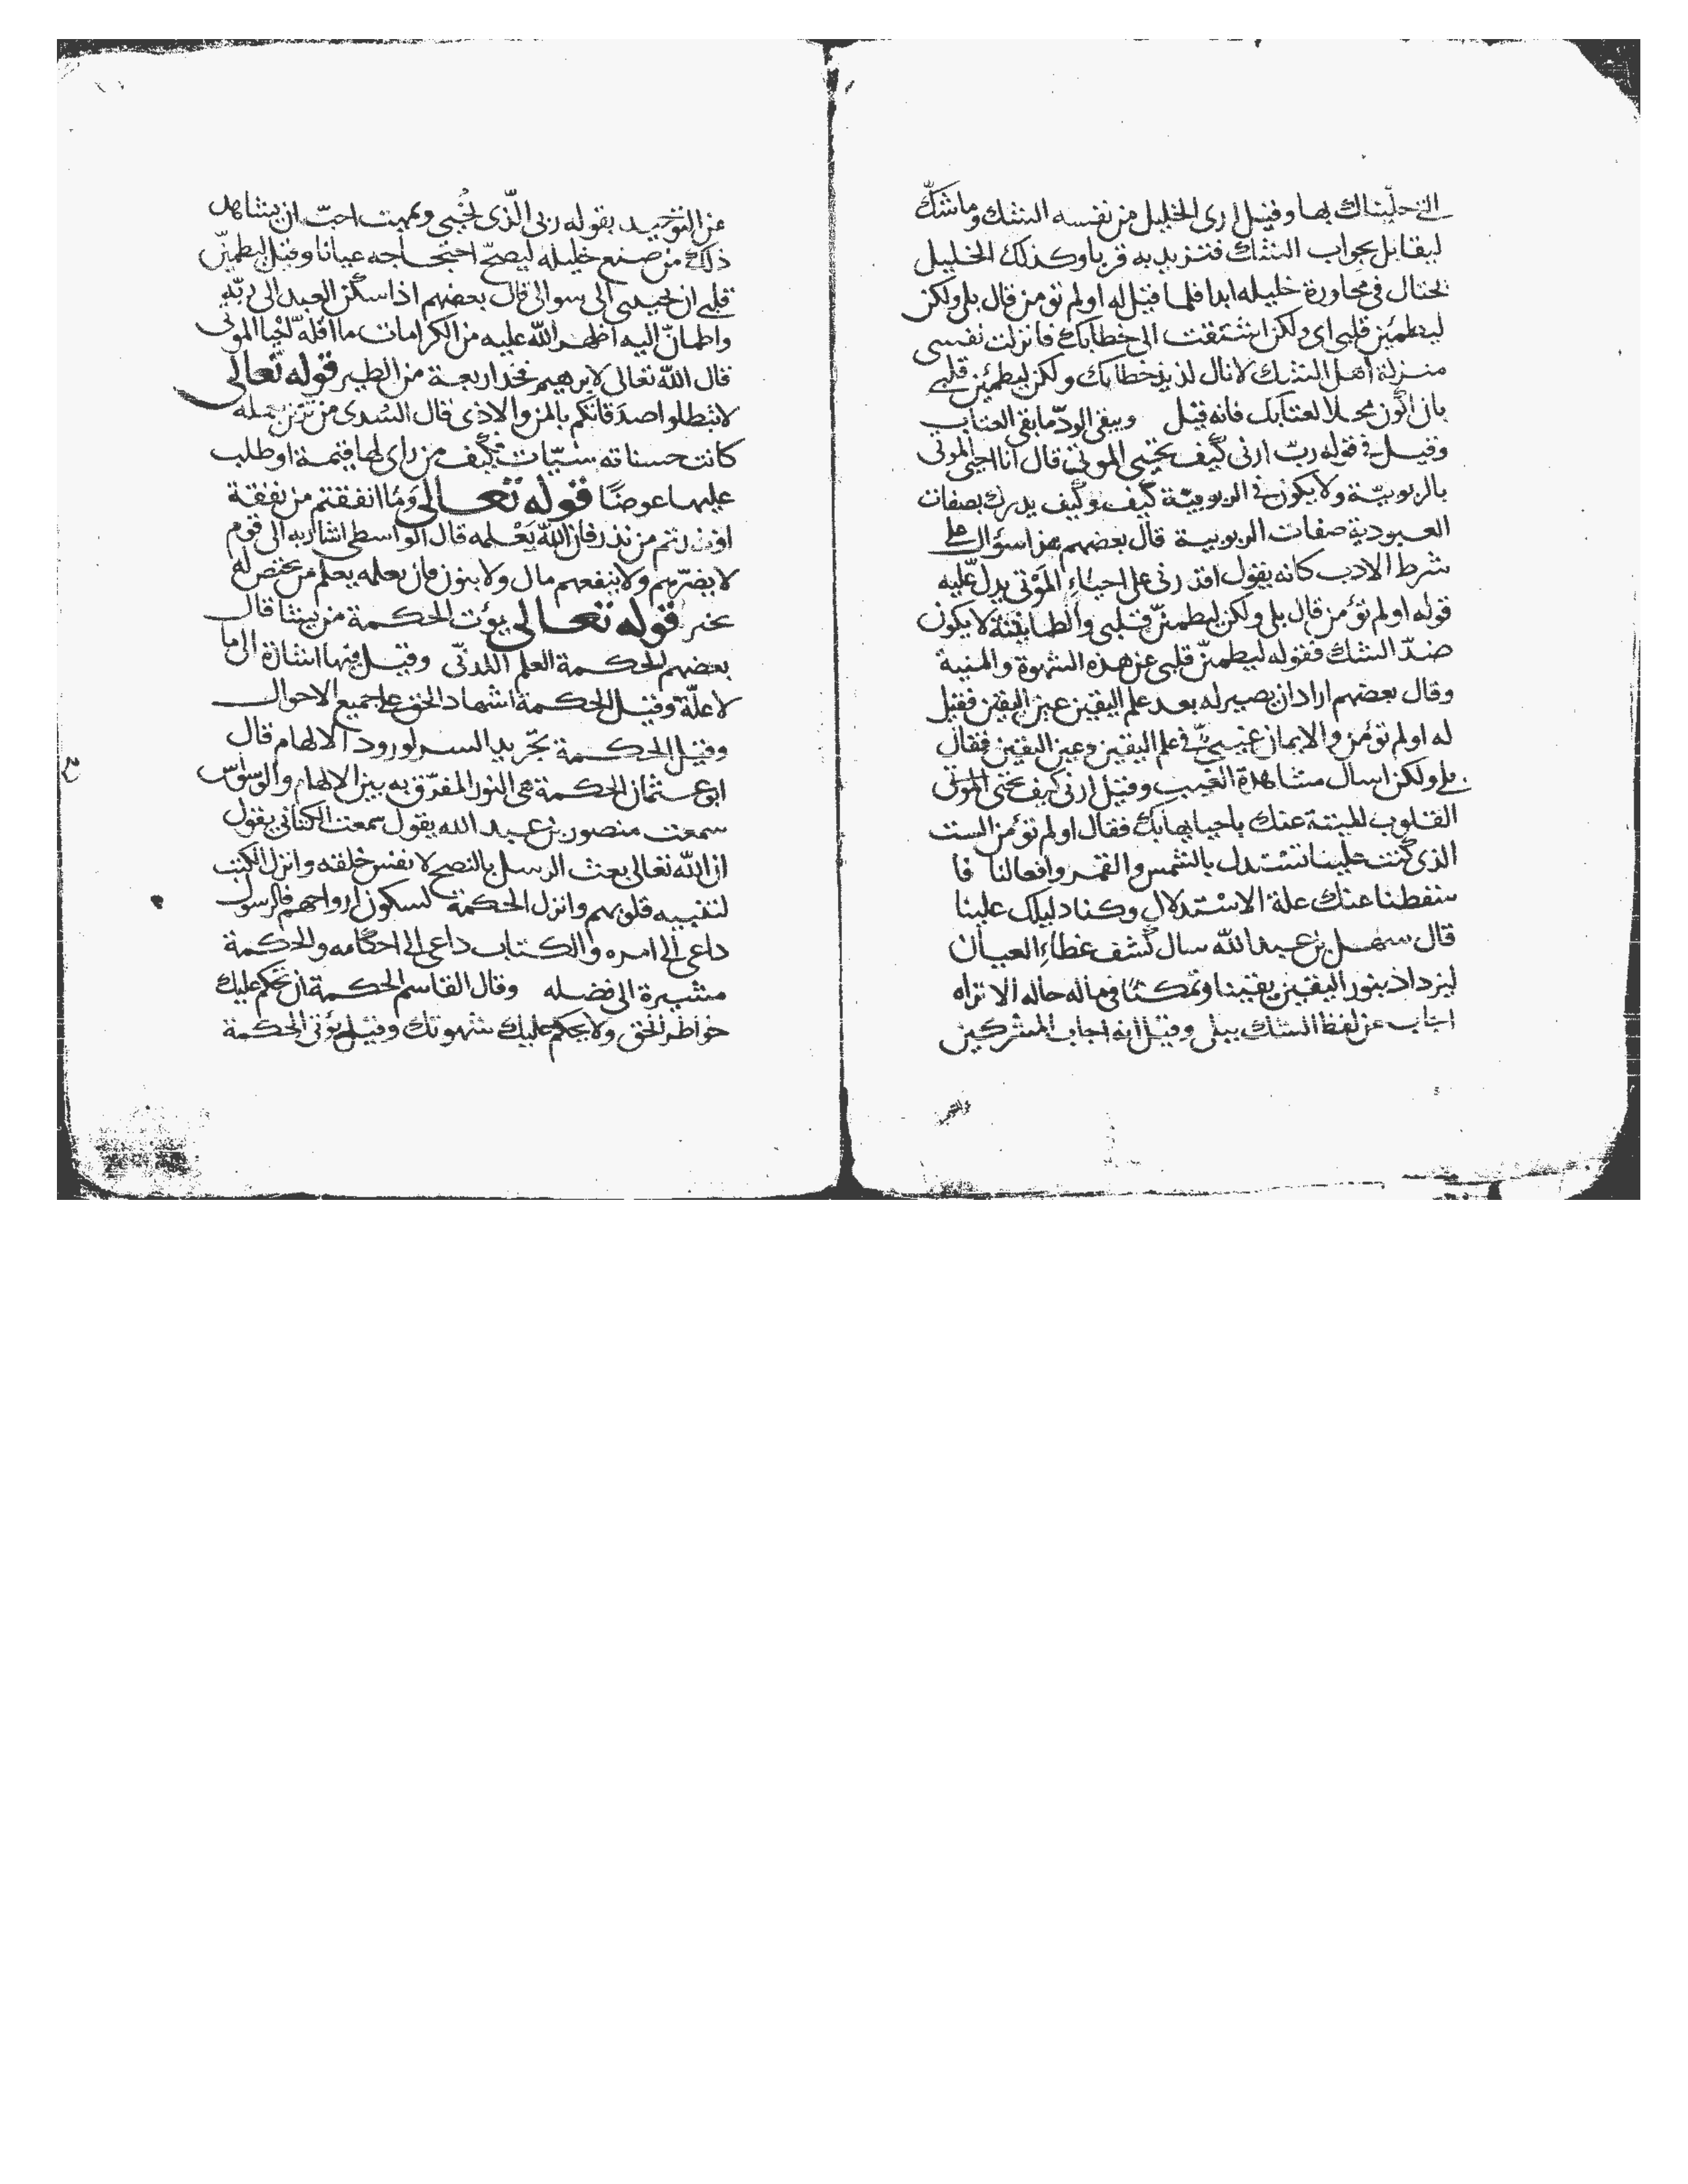 التى حليناك بها وقيل ارى الخليل من نفسه الشك وما شكّ
ليقابل بجواب الشك فتزيد به قربا وكذلك الخليل
يحتال فى محاورة خليله ابدا فلما قيل له اولم تومن قال بلى ولكن
ليطمئن قلبى اى ولكن اشتقت الى خطابك فانزلت نفسى
منزلة اهل الشك لانال لذيذ خطابك ولكن ليطمئن قلبى
بان اكون محلا لعتابك فانه قيل ويبقى الودّ ما بقى العتاب
وقيل فى قوله ربّ ارنى كيف تحيى الموتى قال انا احيى الموتى
بالربوبيّة ولا يكون فى الربوبيّة كيف وكيف يدرك بصفات
العبودية صفات الربوبية قال بعضهم هذا سؤال على
شرط الادب كانه يقول اقدرنى على احياء الموتى يدلّ عليه
قوله اولم تؤمن قال بلى ولكن ليطمئنّ قلبى والطمانينة لا يكون
ضدّ الشك فقوله ليطمئنّ قلبى عن هذه الشهوة والمنية
وقال بعضهم اراد ان يصير له بعد علم اليقين عين اليقين فقيل
له اولم تؤمن والايمان غيبىّ فى علم اليقين وعين اليقين فقال
بلى ولكن اسال مشاهدة الغيب وقيل ارنى كيف تحيى الموتى
القلوب الميتة عنك باحيايها بك فقال اولم تؤمن الست
الذى كنت علينا تستدل بالشمس والقمر وافعالنا فا
سقطنا عنك علة الاستدلال وكنا دليلك علينا
قال سهل بن عبد الله سال كشف غطاء العيان
ليزداد بنور اليقين يقينا وتمكنا فى حاله الا تراه
اجاب عن لفظ الشك ببلى وقيل انه اجاب المشركين
عن التوحيد بقوله ربى الّذى يحيى ويميت احبّ ان يشاهد
ذلك من صنع خليله ليصحّ احتجاجه عيانا وقيل ليطمئنّ
قلبى ان تجيبنى الى سوالى قال بعضهم اذا سكن العبد الى ربّه
واطمانّ اليه اظهر الله عليه من الكرامات ما اقلّه احيا الموتى
قال الله تعالى لابرهيم فخذ اربعة من الطير قوله تعالى
لا تبطلوا صدقاتكم بالمن والاذى قال السّدى من تزين بعمله
كانت حسناته سيّيات فكيف من راى لها قيمة او طلب
عليها عوضًا قوله تعالى وما انفقتم من نفقة
او نذرتم من نذر فان الله يعلمه قال الواسطى اشار به الى قوم
لا يضرّهم ولا ينفعهم مال ولا بنون فان يعلمه يعلم من يختص له
قوله تعالى يؤت الحكمة من يشا قال
بعضهم الحكمة العلم اللدنّى وقيل فيها اشارة الى ما
لا علّة وقيل الحكمة اشهاد الحق على جميع الاحوال
وقيل الحكمة تجريد السر لورود الالهام قال
ابو عثمان الحكمة هى النور المفرّق به بين الالهام والوسواس
سمعت منصور بن عبد الله يقول سمعت الكتانى يقول
ان الله تعالى بعث الرسل بالنصح لانفس خلقه وانزل الكتب
لتنبيه قلوبهم وانزل الحكمة لسكون ارواحهم فالرسول
داعى الى امره والكتاب داعى الى احكامه والحكمة
مشيرة الى فضله وقال القاسم الحكمة ان تحكم عليك
خواطر الحق ولا يحكم عليك شهوتك وقيل يؤتى الحكمة